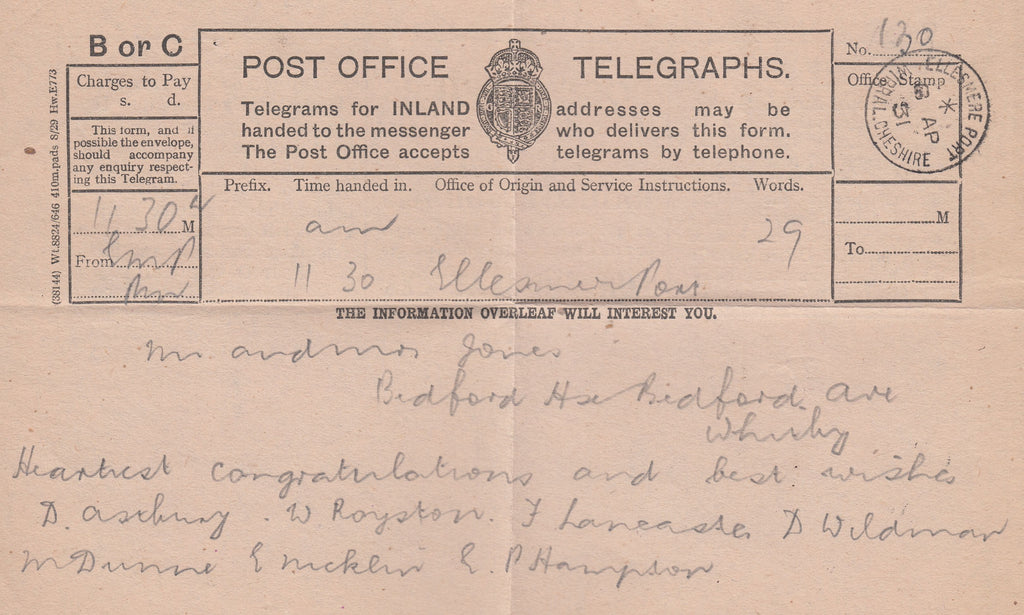 B or C
Charges to Pay
s. d.
This form, and if
possible the envelope,
should accompany
any enquiry respect-
ing this Telegram.
11 30 M
From
(38144) Wt.8824/646 410m.pads 8/29 Hw.E773
POST OFFICE TELEGRAPHS.
Telegrams for INLAND addresses may be
handed to the messenger who delivers this form.
The Post Office accepts telegrams by telephone.
No. 130
Office Stamp
ELLESMERE PORT
WIRRAL. CHESHIRE
AP
31
Prefix. Time handed in. Office of Origin and Service Instructions. Words.
am 29
11 30 Ellesmere Port
M
To
THE INFORMATION OVERLEAF WILL INTEREST YOU.
Mr. and mrs Jones
Bedford Hse Bedford Ave
Whitby
Heartiest congratulations and best wishes
D. astbury. W Royston. F Lancaster D Wildman
M Dunne E Nicklin E. P Hampson